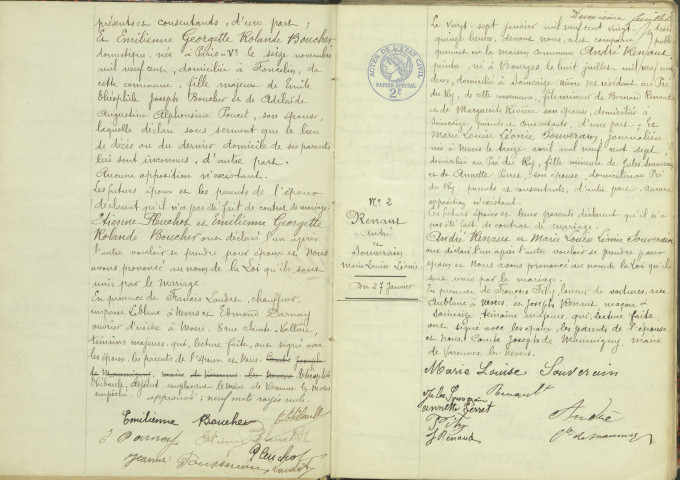 présents et consentants, d'une part ;
Et Emilienne Georgette Rolande Boucher
domestique, née à Paris-V° le seize novembre
mil neuf cent, domiciliée à
cette commune, fille majeure de Emile
Théophile Joseph Boucher et de Adélaïde
Augustine Alphonsine, son épouse,
laquelle déclare sous serment que le lieu
de décès ou du dernier domicile de ses parents
lui sont inconnus, d'autre part.
Aucune opposition n'existant.
Les futurs époux et les parents de l'époux
déclarent qu'il n'a pas été fait de contrat de mariage.
Etienne et Emilienne Georgette
Rolande Boucher ont déclaré l'un après
l'autre vouloir se prendre pour époux et Nous
avons prononcé au nom de la Loi qu'ils sont
unis par le mariage.
En présence de Francis, chauffeur,
à Nevers et Edmond Darnay
ouvrier d'usine à Nevers,
témoins majeurs, qui, lecture faite, ont signé avec
les époux, les parents de l'époux et Nous. Comte Joseph
de Maumigny, maire de Varennes les Nevers
adjoint, remplaçant le maire de Varennes les Nevers
empêché. approuvé : neuf mots rayés nuls.
Emilienne Boucher
Darnay
Jeanne
Deuxième feuillet
Le vingt-sept janvier mil neuf cent vingt-trois
quinze heures, devant nous, ont comparu publi
quement en la maison commune André Renaut
peintre, né à Bourges le huit juillet mil neuf cent
deux, domicilié à Saincaize
fils mineur de Renaut
et de Marguerite Rivière son épouse, domiciliés à
Saincaize, présents et consentants, d'une part. Et
Marie Louise Léonie Souverain, journalière
née à Nevers le treize avril mil neuf cent sept
domiciliée au Pré du Ry, fille mineure de Jules Souverain
et de Annette Perret, son épouse, domiciliés au Pré
du Ry, présents et consentants, d'autre part. Aucune
opposition n'existant.
Les futurs époux et leurs parents déclarent qu'il n'a
pas été fait de contrat de mariage.
André Renaut et Marie Louise Léonie Souverain
ont déclaré l'un après l'autre vouloir se prendre pour
époux et Nous avons prononcé au nom de la Loi qu'ils
sont unis par le mariage.
En présence de François Fity, loueur de voitures, rue
à Nevers, et Joseph Renaut maçon à
Saincaize, témoins majeurs, qui, lecture faite,
ont signé avec les époux, les parents de l'épouse
et Nous. Comte Joseph de Maumigny, maire
de Varennes les Nevers.
Marie Louise Souverain
Jules Souverain
Renault
annette Perret
Fity
André
J Renaud
de Maumigny
ACTES DE L'ETAT CIVIL
PAPIER SPECIAL
2F
N° 2
Renaut
André
et
Souverain
Marie Louise Léonie
Du 27 Janvier